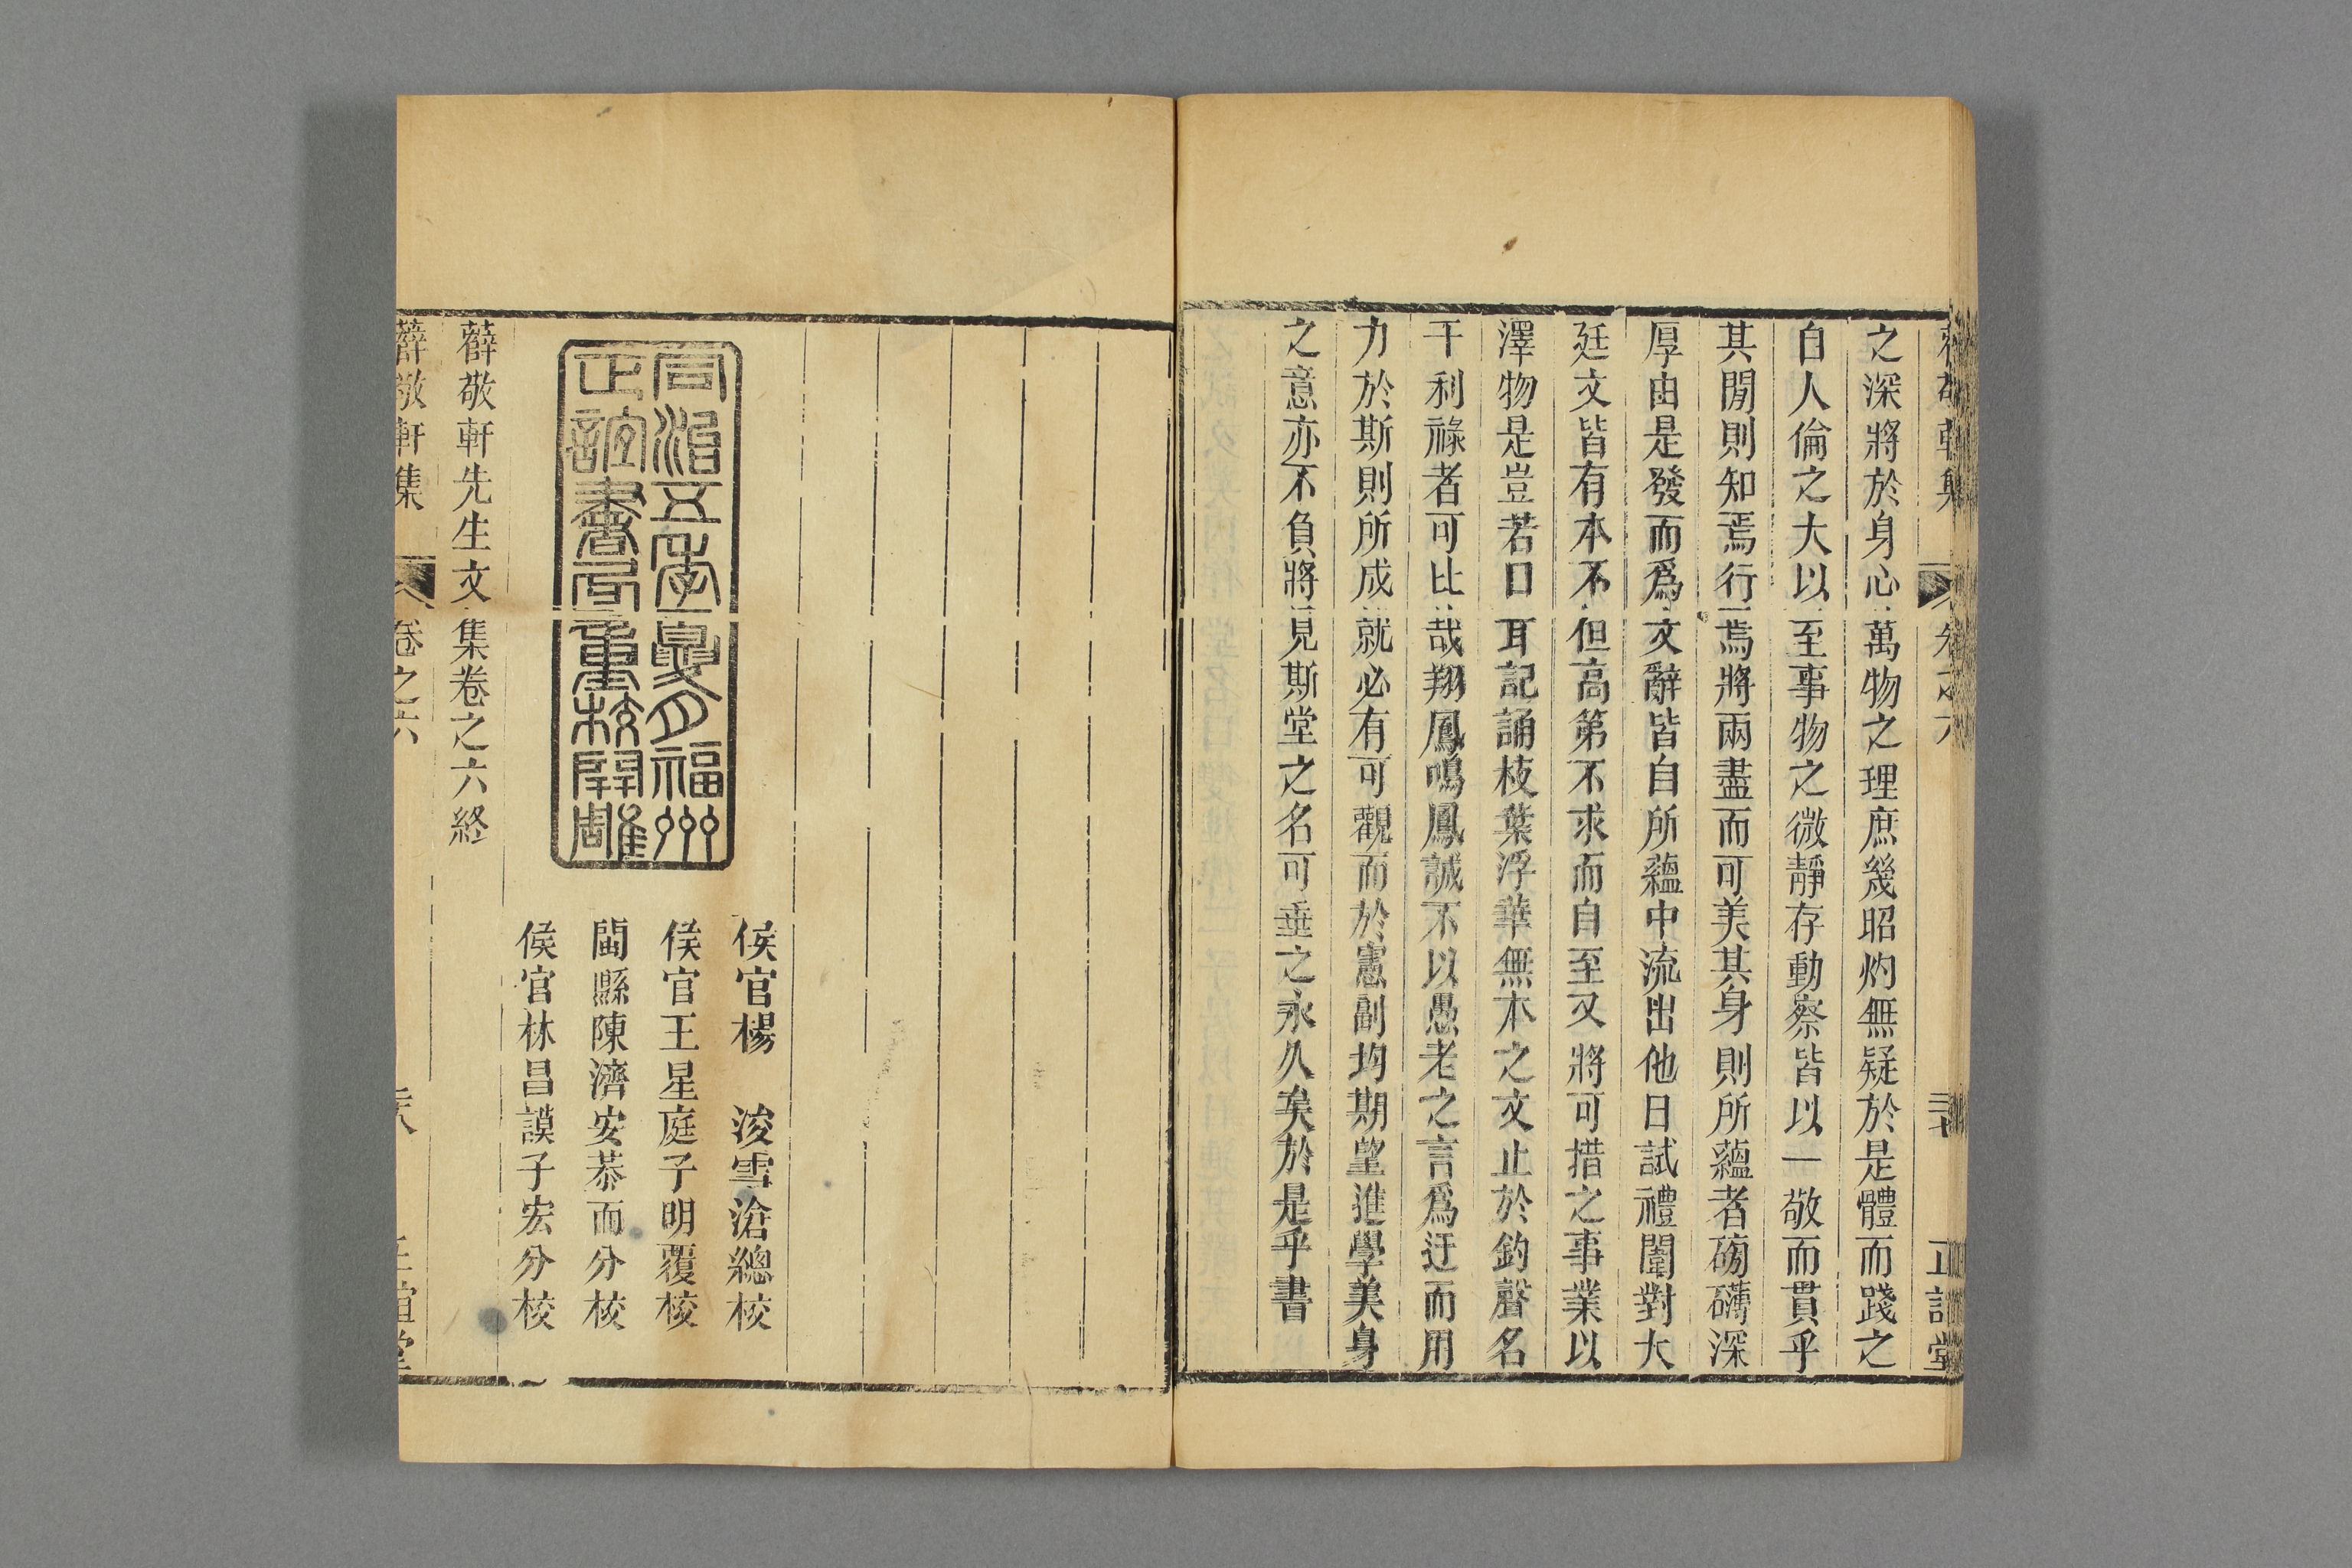 之深將於身心萬物之理庶幾昭灼無疑於是體而踐之
自人倫之大以至事物之微靜存動察皆以一敬而貫乎
其閒則知焉行焉將兩盡而可美其身則所蘊者磅礴深
厚由是發而爲文辭皆自所蘊中流出他日試禮闈對大
廷文皆有本不但高第不求而自至又將可措之事業以
澤物是豈若口耳記誦枝葉浮華無本之文止於釣聲名
干利祿者可比哉翔鳳鳴鳳誠不以愚老之言爲迂而用
力於斯則所成就必有可觀而於憲副均期望進學美身
之意亦不負將見斯堂之名可垂之永久矣於是乎書
同治五年夏月福州
正誼書局重校開雕
侯官楊 浚雪滄總校
侯官王星庭子明覆校
閩縣陳濟安恭而分校
侯官林昌謨子宏分校
薛敬軒先生文集卷之六終
薛敬軒集 卷之六